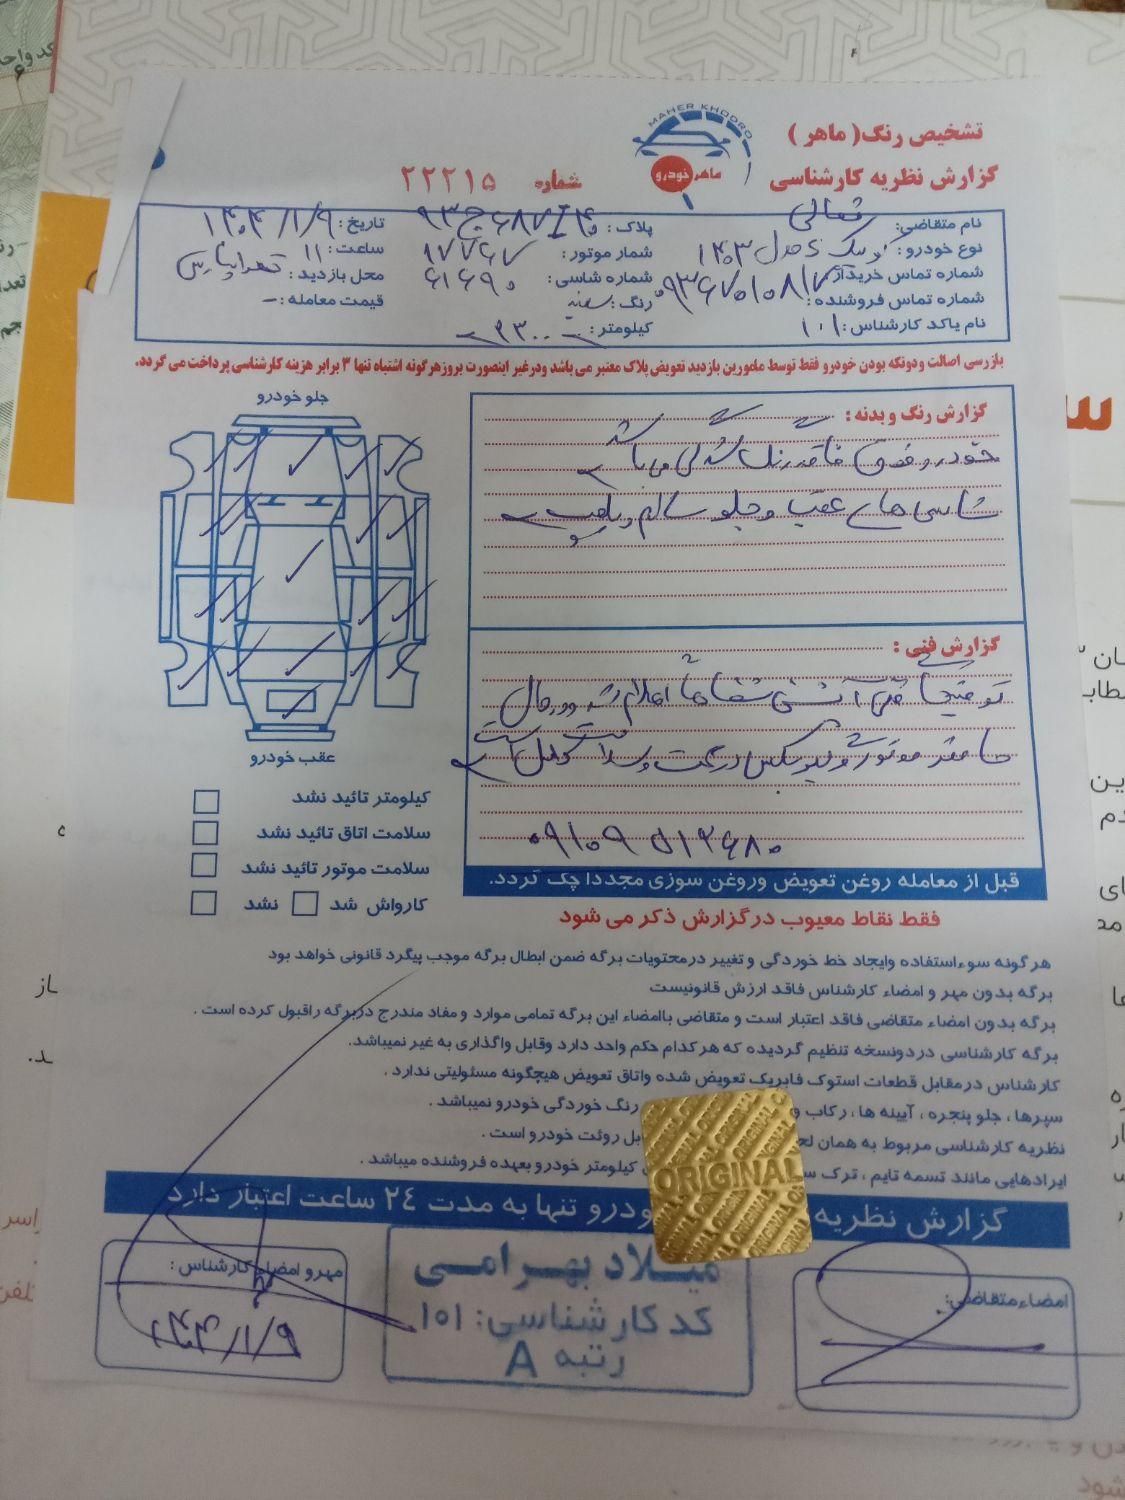 MAHER KHODRO
ماهر خودرو
تشخیص رنگ( ماهر )
گزارش نظریه کارشناسی
شماره ۲۲۲۱۵
نام متقاضی:
پلاک:
تاریخ: ۱۴۰۴/۱/۹
نوع خودرو: کوییک S مدل ۱۴۰۳
شماره موتور: ۸۷۷۶۷
ساعت: ۱۱
شماره تماس خریدار: ۰۹۳۶۷۰۱۰۸۱۷
شماره شاسی: ۶۱۶۹۰
محل بازدید: تهرانپارس
شماره تماس فروشنده:
رنگ: سفید
قیمت معامله: -
نام یاکد کارشناس: ۱۰۱
کیلومتر:
بازرسی اصالت ودوتکه بودن خودرو فقط توسط مامورین بازدید تعویض پلاک معتبر می باشد ودرغیر اینصورت بروزهرگونه اشتباه تنها ۳ برابر هزینه کارشناسی پرداخت می گردد.
جلو خودرو
گزارش رنگ و بدنه :
خودرو فوق فاقد رنگ شدگی می باشد
شاسی های عقب و جلو سالم و پلمپ
گزارش فنی :
توضیحات فنی
حاضر موتور و گیربکس در صحت و سلامت کامل است
۰۹۱۰۹۵۱۳۶۸۰
عقب خودرو
کیلومتر تائید نشد
سلامت اتاق تائید نشد
سلامت موتور تائید نشد
کارواش شد نشد
قبل از معامله روغن تعویض وروغن سوزی مجددا چک گردد.
فقط نقاط معیوب درگزارش ذکر می شود
هرگونه سوءاستفاده وایجاد خط خوردگی و تغییر درمحتویات برگه ضمن ابطال برگه موجب پیگرد قانونی خواهد بود
برگه بدون مهر و امضاء کارشناس فاقد ارزش قانونیست
برگه بدون امضاء متقاضی فاقد اعتبار است و متقاضی باامضاء این برگه تمامی موارد و مفاد مندرج دربرگه راقبول کرده است .
برگه کارشناسی دردونسخه تنظیم گردیده که هرکدام حکم واحد دارد وقابل واگذاری به غیر نمیباشد.
کارشناس درمقابل قطعات استوک فابریک تعویض شده واتاق تعویض هیچگونه مسئولیتی ندارد .
سپرها ، جلو پنجره ، آیینه ها ، رکاب و رنگ خوردگی خودرو نمیباشد .
نظریه کارشناسی مربوط به همان روئت خودرو است .
ایرادهایی مانند تسمه تایم ، ترک کیلومتر خودرو بعهده فروشنده میباشد .
ORIGINAL
گزارش نظریه خودرو تنها به مدت ۲٤ ساعت اعتبار دارد
مهر و امضاء کارشناس :
۱۴۰۴/۱/۹
میلاد بهرامی
کد کارشناسی: ۱۰۱
رتبه A
امضاء متقاضی: